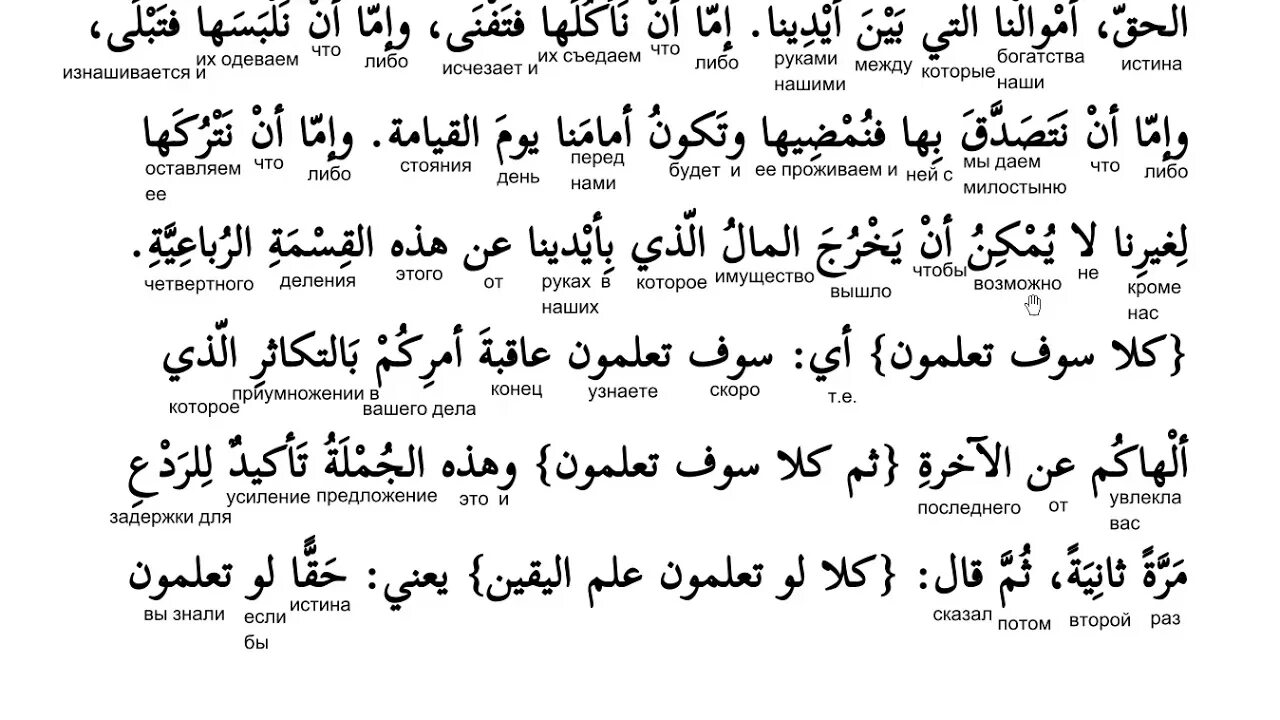 الحقّ، أمْوالُنا التي بَيْنَ أيْدِينا. إمّا أنْ نَأكُلَها فتَفْنَى، وإمّا أنْ نَلْبَسَها فتَبْلَى،
изнашивается и их одеваем что либо исчезает и их съедаем что либо руками нашими между которые богатства наши истина
وإمّا أنْ نَتَصَدَّقَ بِها فنُمْضِيها وتَكونُ أمامَنا يومَ القيامة. وإمّا أنْ نَتْرُكَها
оставляем ее что либо стояния день перед нами будет и ее проживаем и ней с мы даем милостыню что либо
لِغيرِنا لا يُمْكِنُ أنْ يَخْرُجَ المالُ الّذي بِأيْدينا عن هذه القِسْمَةِ الرُباعِيَّةِ.
четвертного деления этого от руках в наших которое имущество вышло чтобы возможно не кроме нас
{كلا سوف تعلمون} أي: سوف تعلمون عاقبةَ أمرِكُمْ بَالتكاثرِ الّذي
которое приумножении в вашего дела конец узнаете скоро т.е.
ألْهاكُم عن الآخرةِ {ثم كلا سوف تعلمون} وهذه الجُمْلَةُ تَأكيدٌ لِلرَدْعِ
задержки для усиление предложение это и последнего от увлекла вас
مَرَّةً ثانِيَةً، ثُمَّ قال: {كلا لو تعلمون علم اليقين} يعني: حَقًّا لو تعلمون
вы знали если бы истина сказал потом второй раз